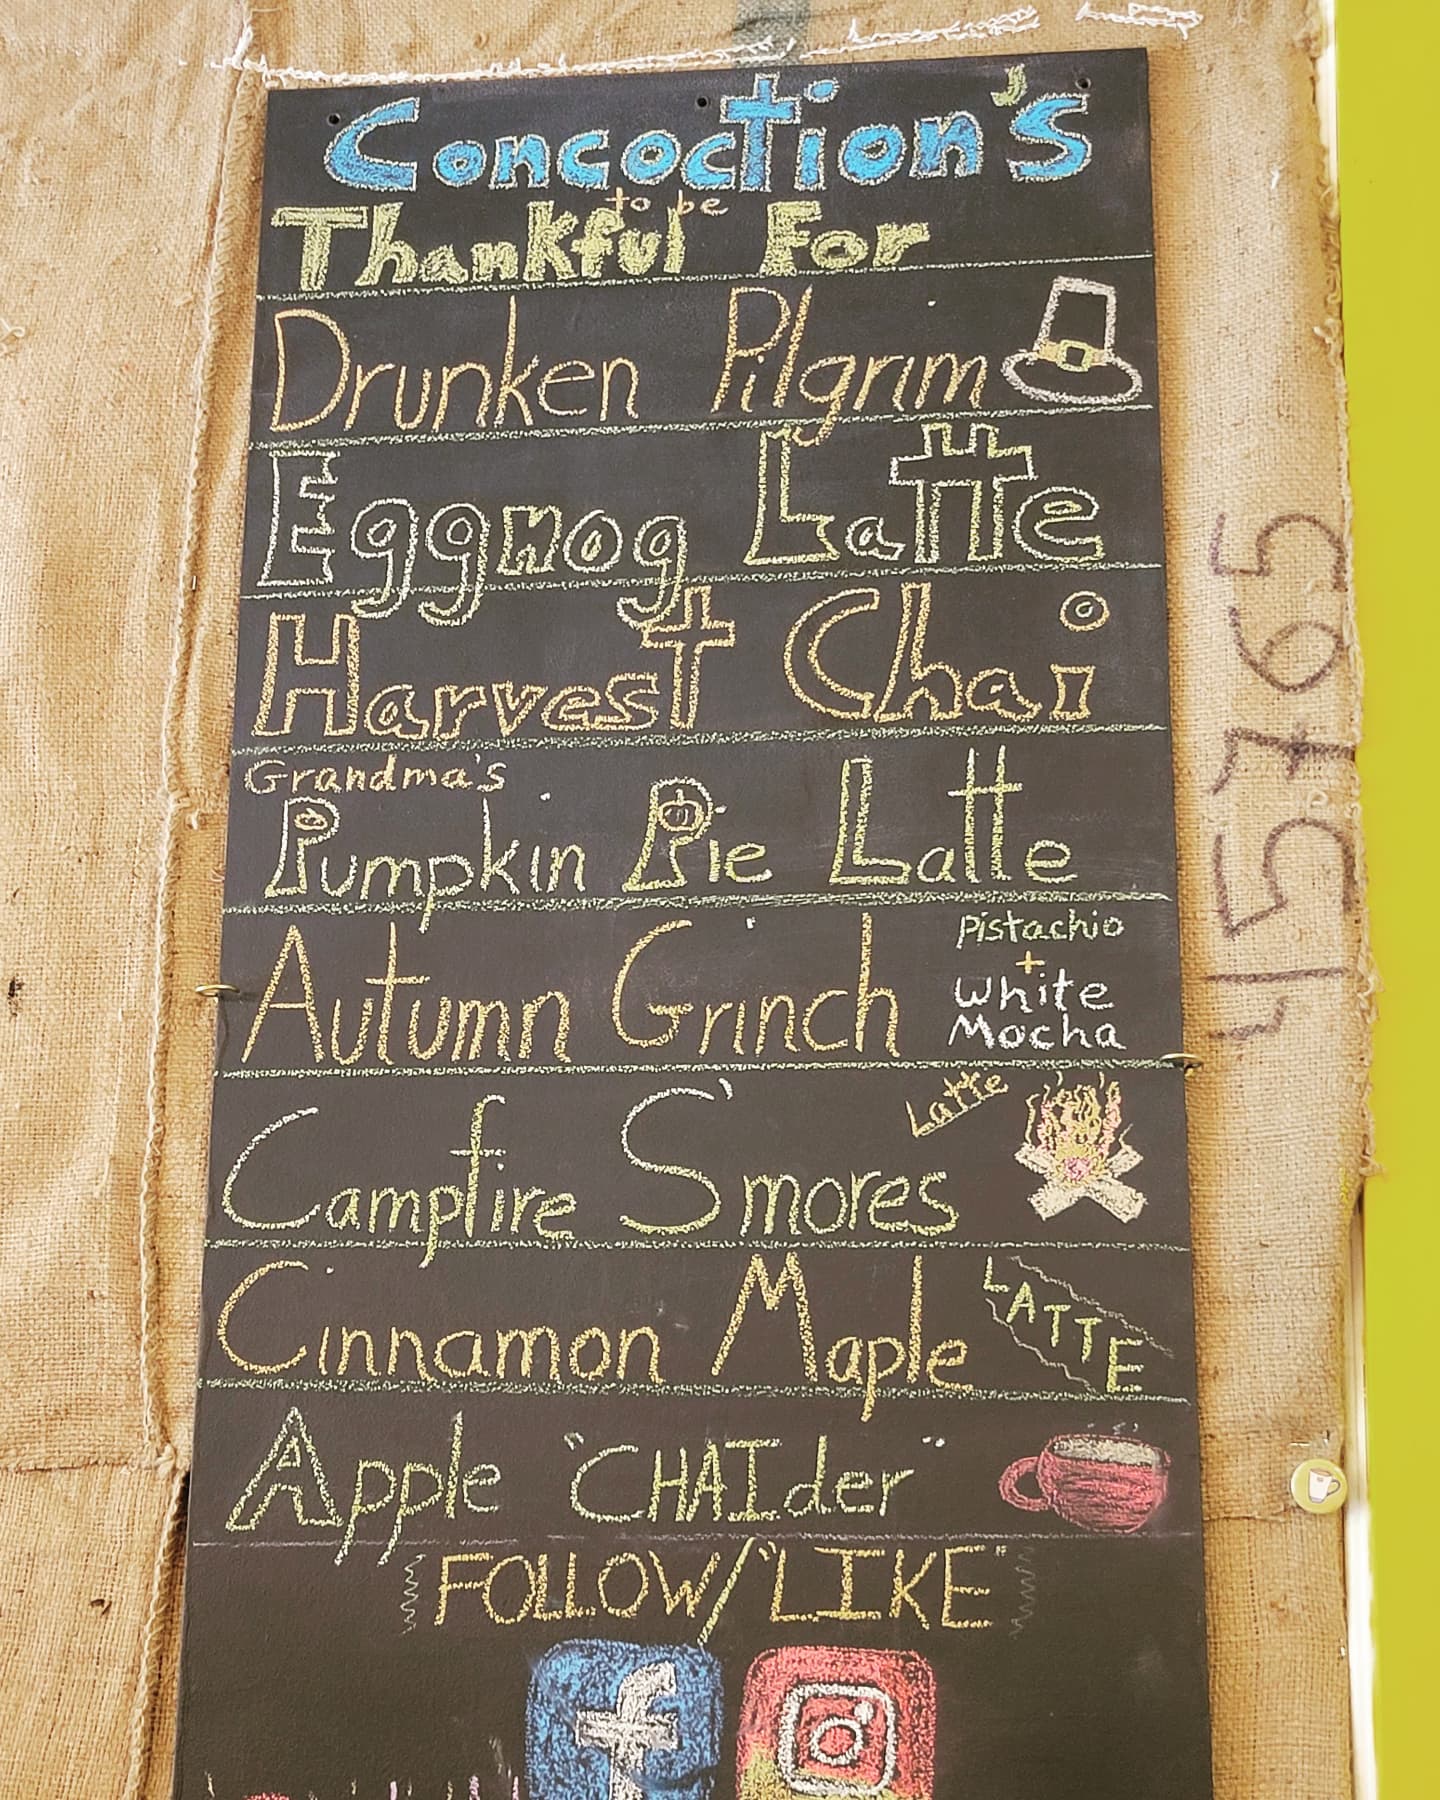 Concoction's
to be
Thankful For
Drunken Pilgrim
Eggnog Latte
Harvest Chai
Grandma's
Pumpkin Pie Latte
Autumn Grinch
Pistachio
+
White
Mocha
Campfire S'mores
Latte
Cinnamon Maple
LATTE
Apple "CHAIder"
FOLLOW/"LIKE"
f
45765